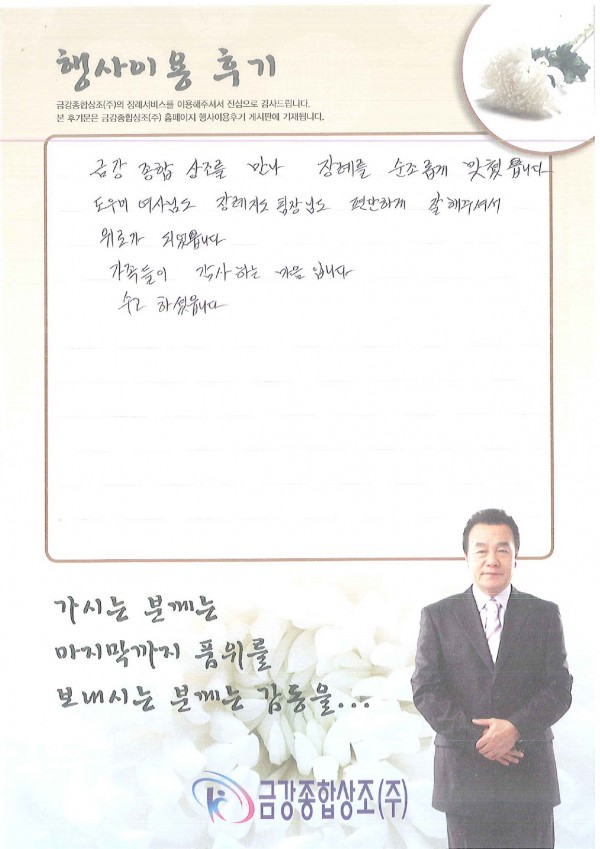 행사이용 후기
금강종합상조(주)의 장례서비스를 이용해주셔서 진심으로 감사드립니다.
본 후기문은 금강종합상조(주) 홈페이지 행사이용후기 게시판에 기재됩니다.
금강 종합 상조를 만나 장례를 순조롭게 맞쳤읍니다
도우미 여사님도 장례지도 팀장님도 편안하게 잘해주셔서
위로가 되었읍니다
가족들이 감사하는 마음 입니다
수고 하셨읍니다
가시는 분께는
마지막까지 품위를
보내시는 분께는 감동을...
금강종합상조(주)